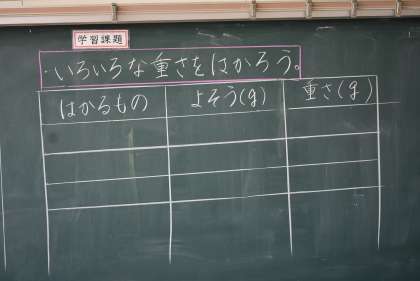 学習課題
・いろいろな重さをはかろう。
はかるもの よそう(g) 重さ(g)